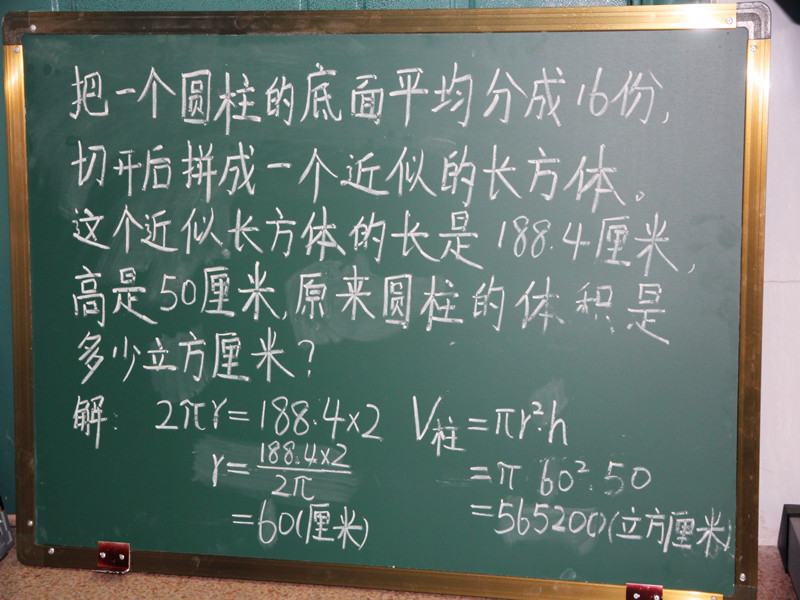 把一个圆柱的底面平均分成16份,
切开后拼成一个近似的长方体。
这个近似长方体的长是188.4厘米,
高是50厘米,原来圆柱的体积是
多少立方厘米?
解: 2πr=188.4×2 V柱=πr²·h
r=188.4×2/2π =π·60²·50
=60(厘米) =565200(立方厘米)